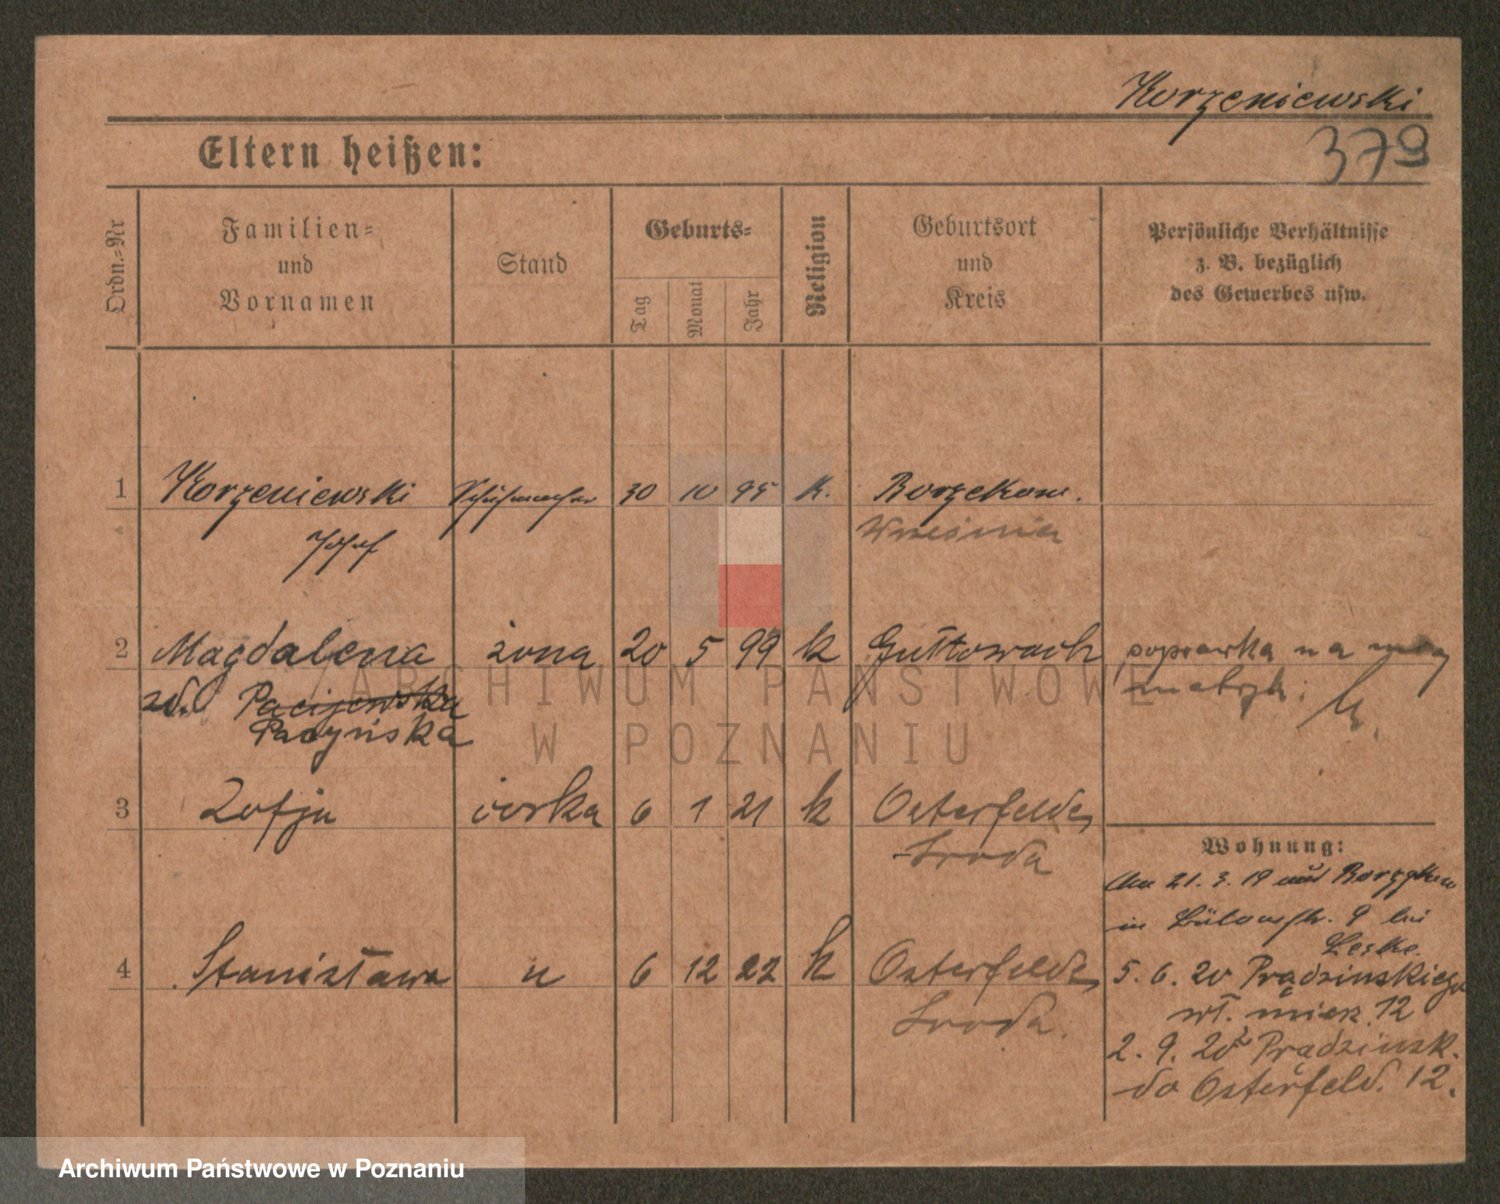 Korzeniewski
379
Eltern heißen:
Ordn.-Nr
Familien-
und
Vornamen
Stand
Geburts-
Tag
Monat
Jahr
Religion
Geburtsort
und
Kreis
Persönliche Verhältnisse
z. B. bezüglich
des Gewerbes usw.
1 Korzeniewski Schuhmacher 30 10 95 K. Borzekow.
Josef Wrzesnia
2 Magdalena żona 20 5 99 k Guttowach poprawka na mocy
zd. Pacijewska metryk:
Paczyńska
3 Zofja córka 6 1 21 k Osterfelde,
Sroda
Wohnung:
Am 21. 3. 19 aus
in Bülowstr. 9 bei
Leske.
4 Stanisława u 6 12 22 k Osterfelde,
Sroda.
5. 6. 20 Prądzinskiego
wł. miesz. 12
2. 9. 20 Prądzinsk.
do Osterfeld. 12.
ARCHIWUM PAŃSTWOWE
W POZNANIU
Archiwum Państwowe w Poznaniu